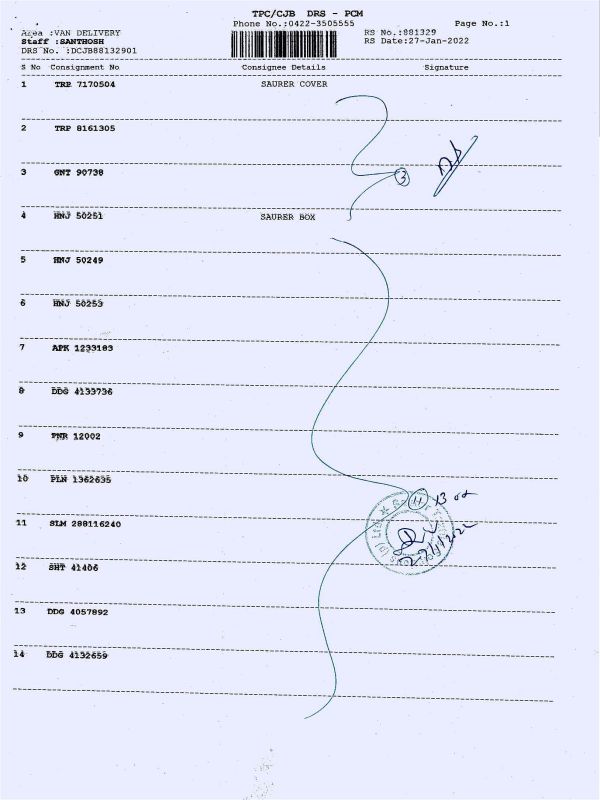 TPC/CJB DRS - PCM
Phone No.:0422-3505555 Page No.:1
Area :VAN DELIVERY RS No.:881329
Staff :SANTHOSH RS Date:27-Jan-2022
DRS No. :DCJB88132901
S No Consignment No Consignee Details Signature
1 TRP 7170504 SAURER COVER
2 TRP 8161305
3 GNT 90738
3
4 HNJ 50251 SAURER BOX
5 HNJ 50249
6 HNJ 50253
7 APK 1233183
8 DDG 4133736
9 PNR 12002
10 PLN 1362635
11
11 SLM 288116240
12 SHT 41406
13 DDG 4057892
14 DDG 4132659